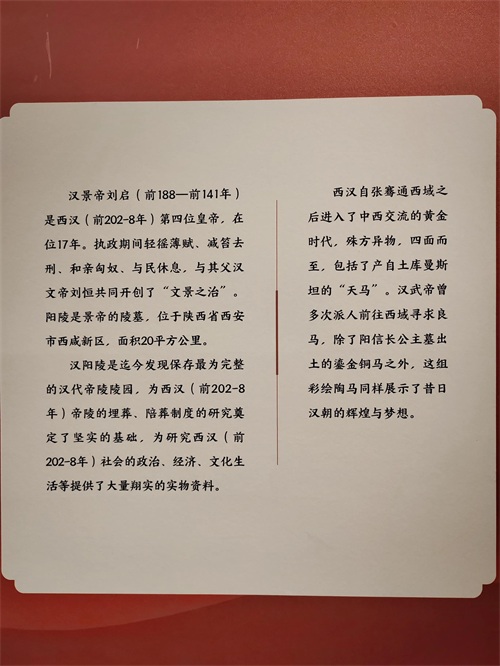 汉景帝刘启（前188—前141年）
是西汉（前202-8年）第四位皇帝，在
位17年。执政期间轻徭薄赋、减笞去
刑、和亲匈奴、与民休息，与其父汉
文帝刘恒共同开创了“文景之治”。
阳陵是景帝的陵墓，位于陕西省西安
市西咸新区，面积20平方公里。
汉阳陵是迄今发现保存最为完整
的汉代帝陵陵园，为西汉（前202-8
年）帝陵的埋葬、陪葬制度的研究奠
定了坚实的基础，为研究西汉（前
202-8年）社会的政治、经济、文化生
活等提供了大量翔实的实物资料。
西汉自张骞通西域之
后进入了中西交流的黄金
时代，殊方异物，四面而
至，包括了产自土库曼斯
坦的“天马”。汉武帝曾
多次派人前往西域寻求良
马，除了阳信长公主墓出
土的鎏金铜马之外，这组
彩绘陶马同样展示了昔日
汉朝的辉煌与梦想。